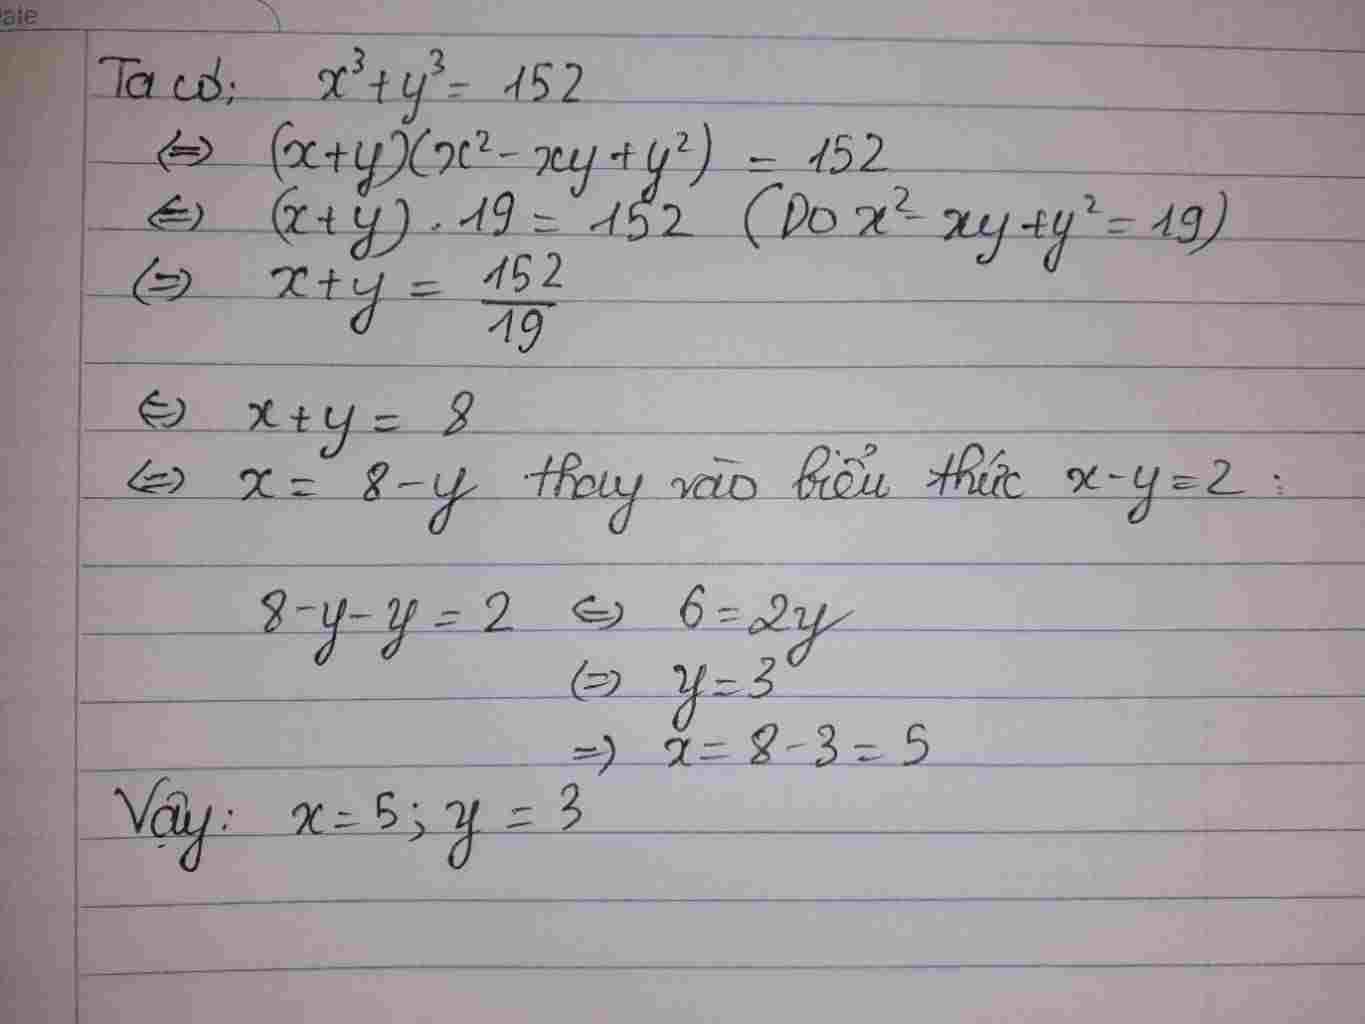 Ta có: x³ + y³ = 152
⇔ (x+y)(x² - xy + y²) = 152
⇔ (x+y) . 19 = 152 (Do x² - xy + y² = 19)
⇔ x + y = 152/19
⇔ x + y = 8
⇔ x = 8 - y thay vào biểu thức x - y = 2 :
8 - y - y = 2 ⇔ 6 = 2y
⇔ y = 3
⇒ x = 8 - 3 = 5
Vậy: x = 5; y = 3